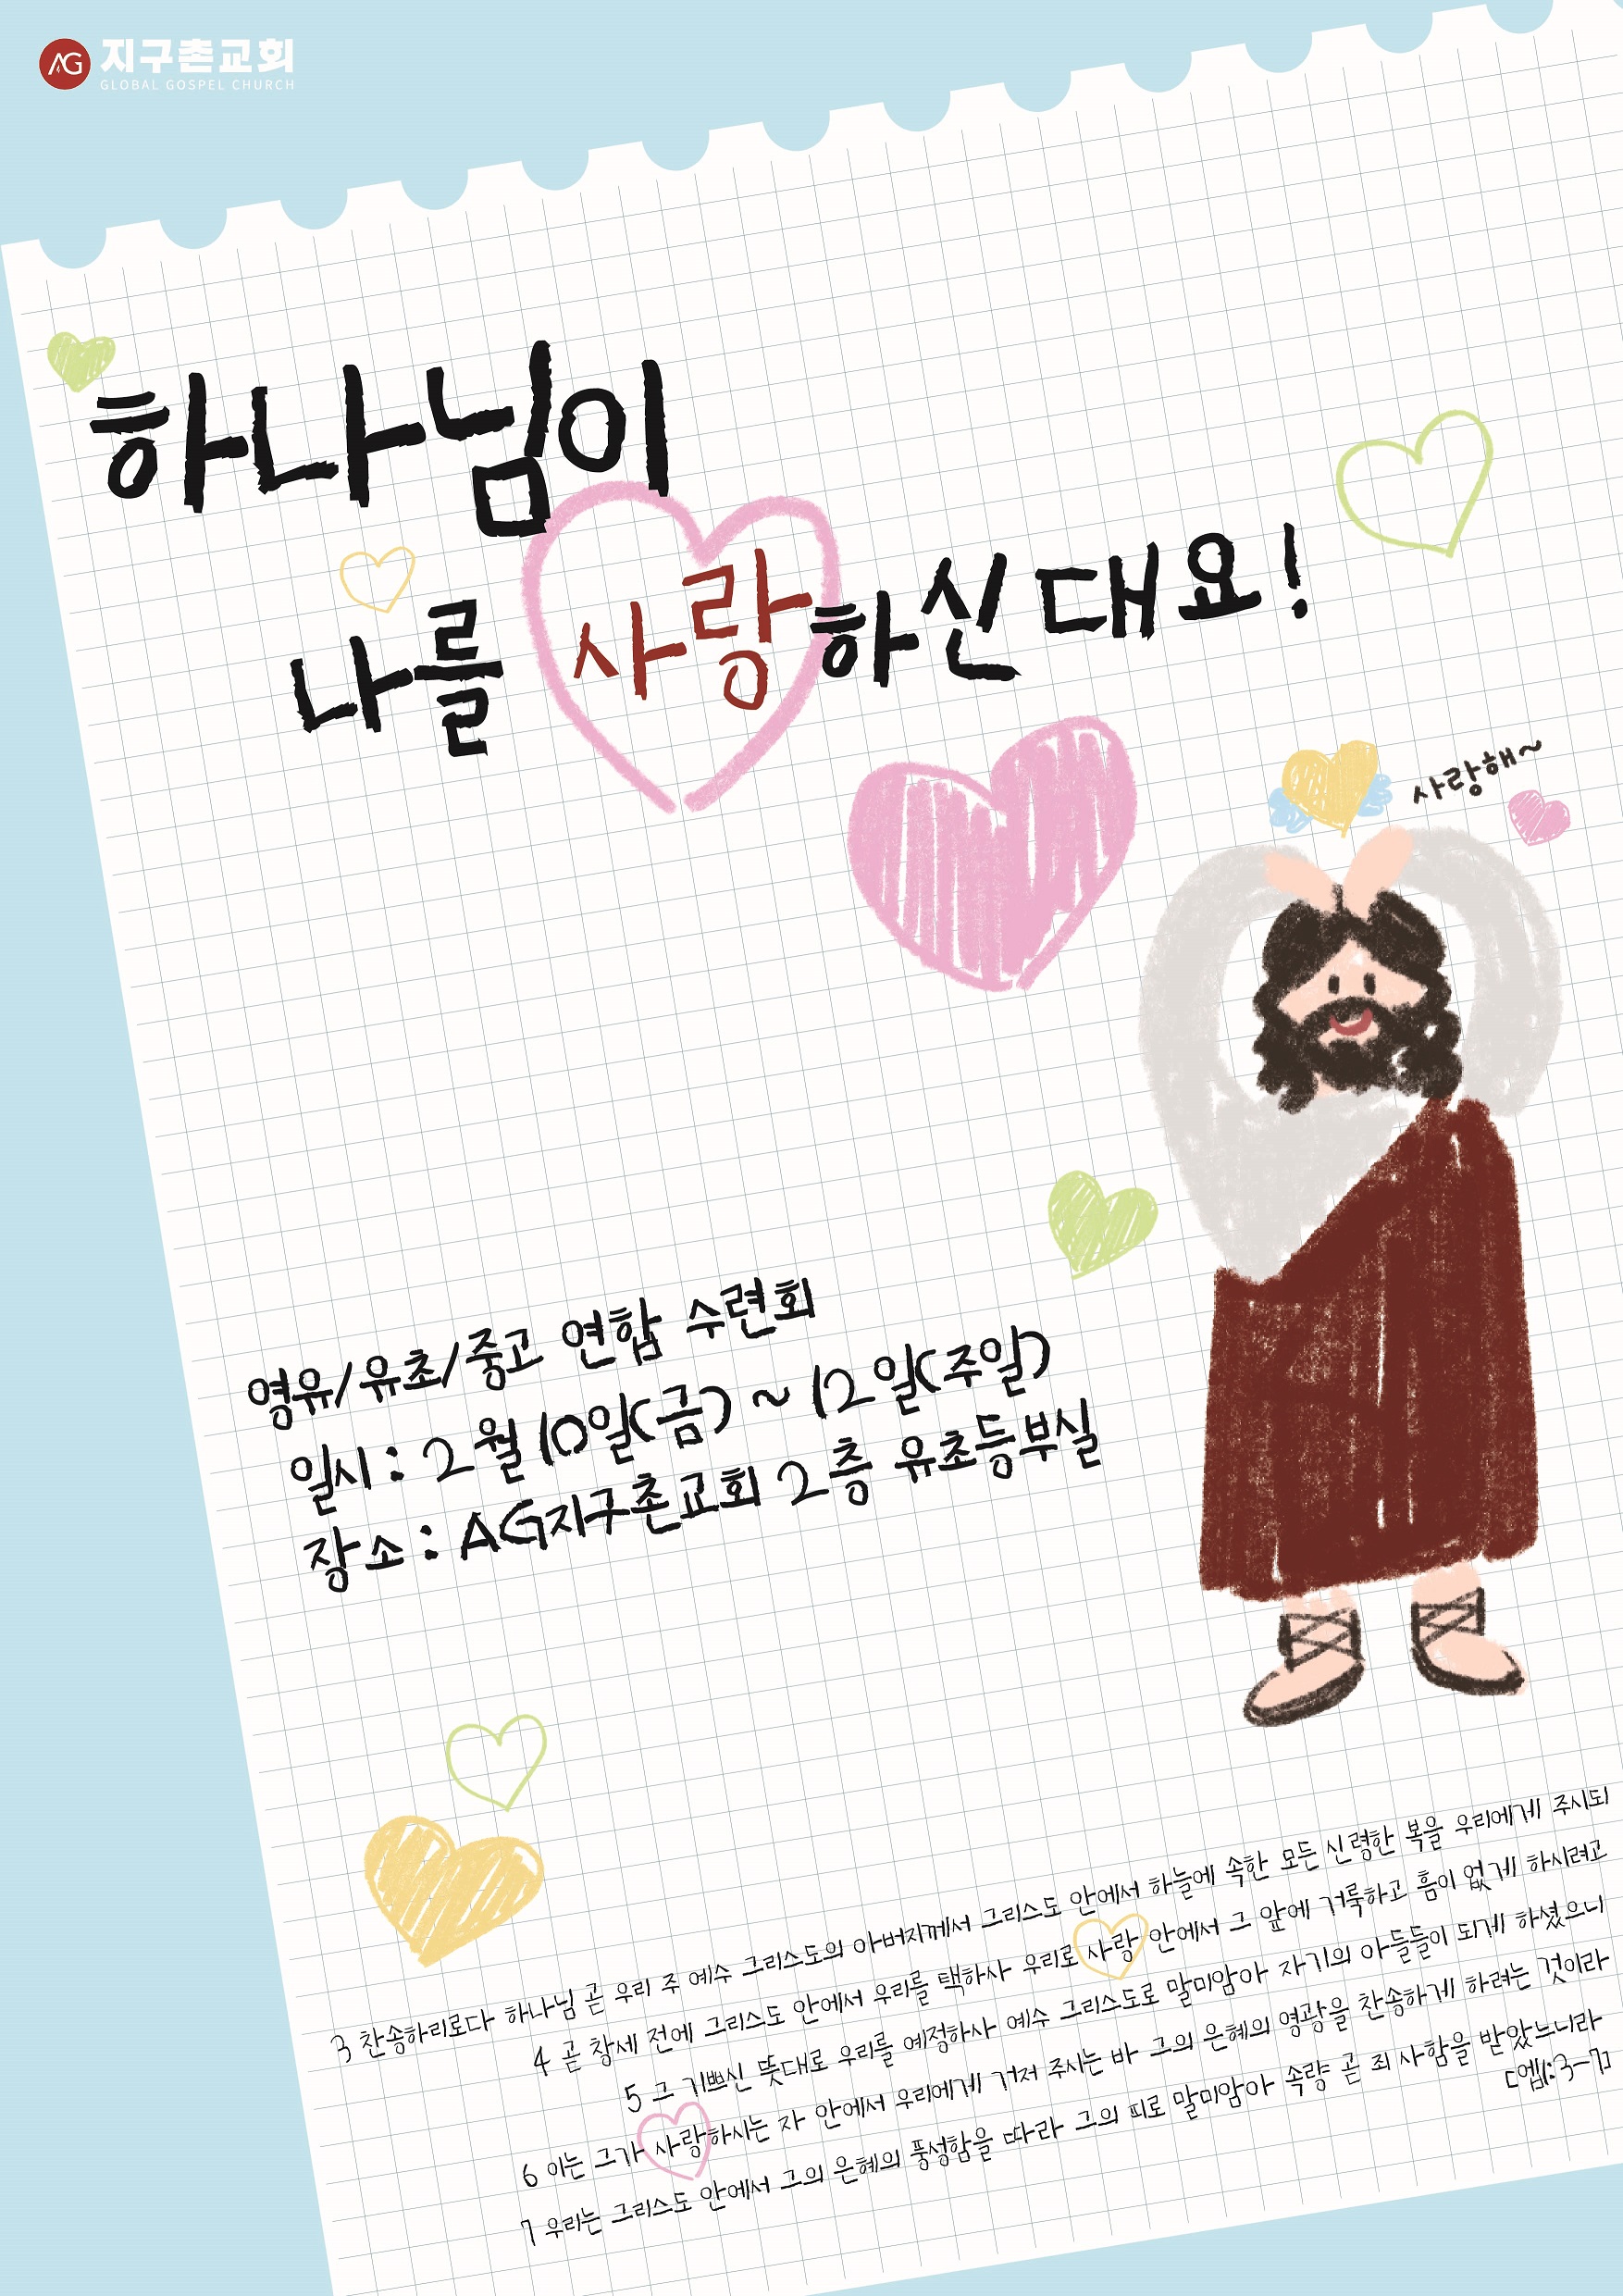 AG 지구촌교회
GLOBAL GOSPEL CHURCH
하나님이
나를 사랑하신대요!
사랑해~
영유/유초/중고 연합 수련회
일시: 2월 10일(금) ~ 12일(주일)
장소: AG지구촌교회 2층 유초등부실
3 찬송하리로다 하나님 곧 우리 주 예수 그리스도의 아버지께서 그리스도 안에서 하늘에 속한 모든 신령한 복을 우리에게 주시되
4 곧 창세 전에 그리스도 안에서 우리를 택하사 우리로 사랑 안에서 그 앞에 거룩하고 흠이 없게 하시려고
5 그 기쁘신 뜻대로 우리를 예정하사 예수 그리스도로 말미암아 자기의 아들들이 되게 하셨으니
6 이는 그가 사랑하시는 자 안에서 우리에게 거저 주시는 바 그의 은혜의 영광을 찬송하게 하려는 것이라
7 우리는 그리스도 안에서 그의 은혜의 풍성함을 따라 그의 피로 말미암아 속량 곧 죄 사함을 받았느니라
[엡1:3-7]